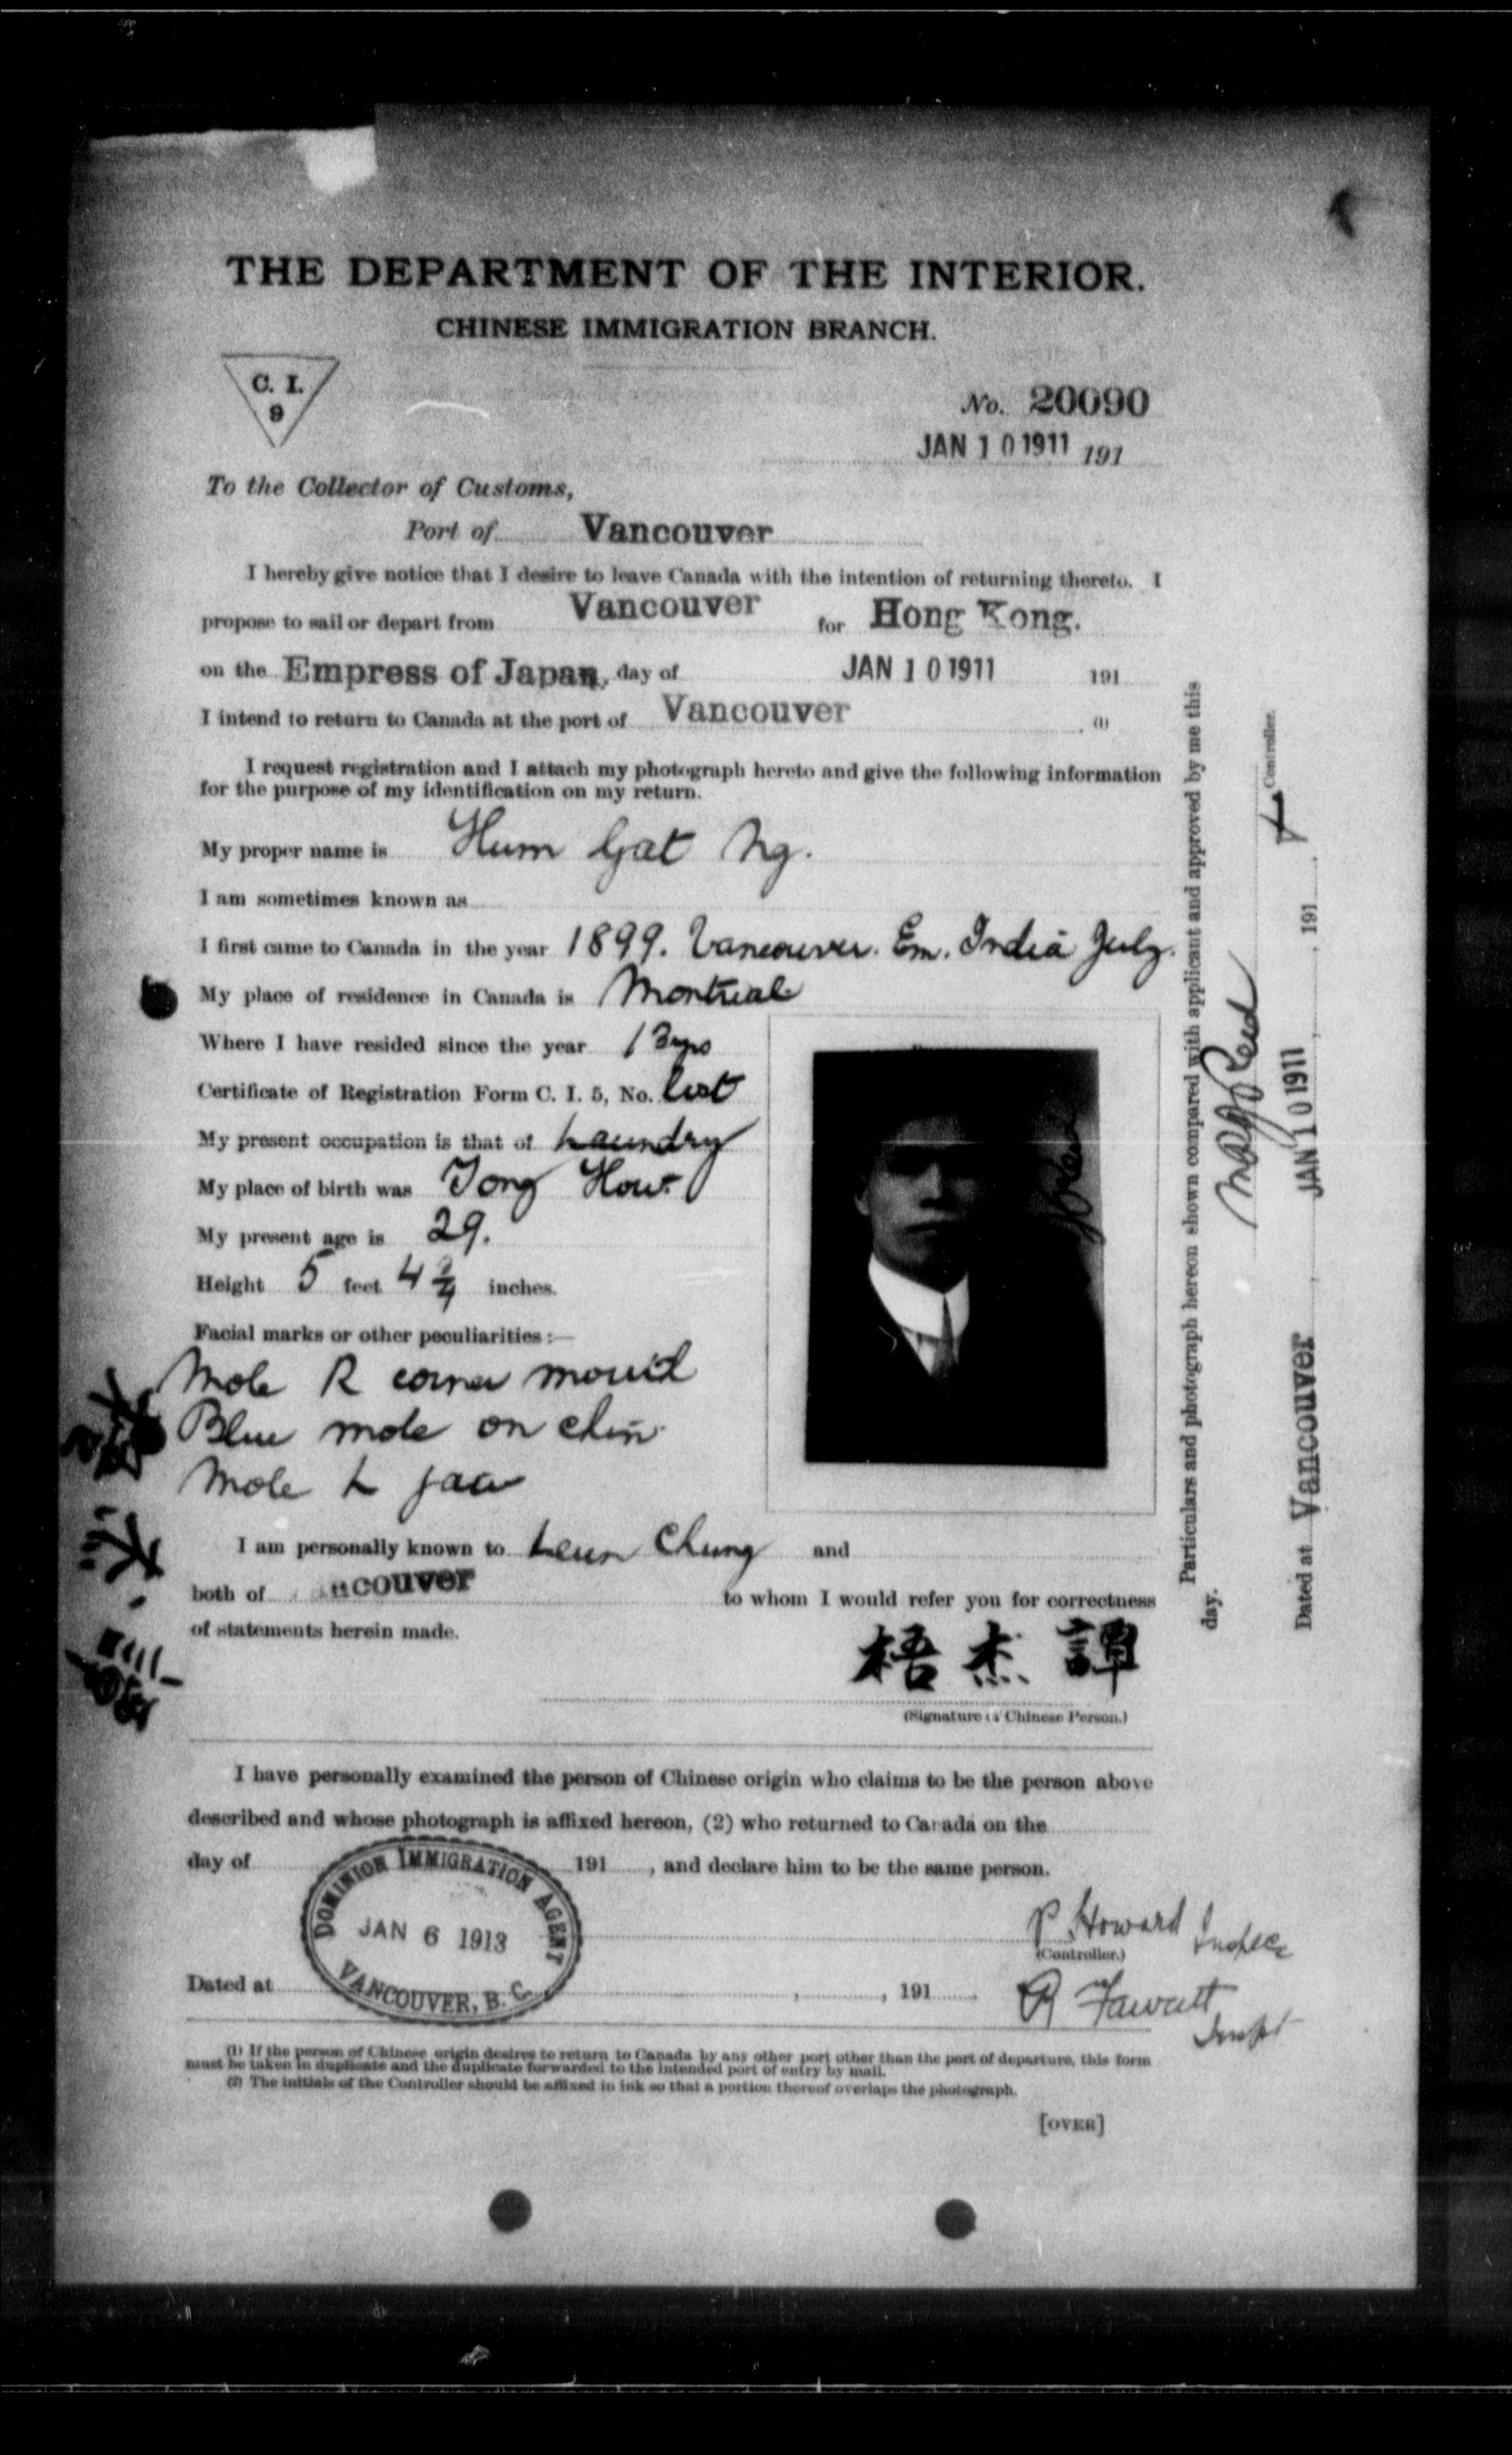 THE DEPARTMENT OF THE INTERIOR.
CHINESE IMMIGRATION BRANCH.
C. I.
9
No. 20090
JAN 10 1911 191
To the Collector of Customs,
Port of Vancouver
I hereby give notice that I desire to leave Canada with the intention of returning thereto. I
propose to sail or depart from Vancouver for Hong Kong.
on the Empress of Japan, day of JAN 10 1911 191
I intend to return to Canada at the port of Vancouver (1)
I request registration and I attach my photograph hereto and give the following information
for the purpose of my identification on my return.
My proper name is Hum Gat Ng.
I am sometimes known as
I first came to Canada in the year 1899. Vancouver. Em. India July.
My place of residence in Canada is Montreal
Where I have resided since the year 13 yrs
Certificate of Registration Form C. I. 5, No. lost
My present occupation is that of Laundry
My place of birth was Tong How.
My present age is 29.
Height 5 feet 4 inches.
Facial marks or other peculiarities :—
Mole R corner mouth
Blue mole on chin
Mole L jaw
I am personally known to Leun Chung and
both of ncouver to whom I would refer you for correctness
of statements herein made.
梧 杰 譚
(Signature of Chinese Person.)
I have personally examined the person of Chinese origin who claims to be the person above
described and whose photograph is affixed hereon, (2) who returned to Canada on the
day of 191 , and declare him to be the same person.
DOMINION IMMIGRATION AGENT
JAN 6 1913
VANCOUVER, B. C.
P. Howard Inspec
(Controller.)
Dated at , , 191
R Fawcett
Inspt
(1) If the person of Chinese origin desires to return to Canada by any other port other than the port of departure, this form
must be taken in duplicate and the duplicate forwarded to the intended port of entry by mail.
(2) The initials of the Controller should be affixed in ink so that a portion thereof overlaps the photograph.
[OVER]
Particulars and photograph hereon shown compared with applicant and approved by me this
day.
Controller.
Dated at Vancouver JAN 10 1911 , 191